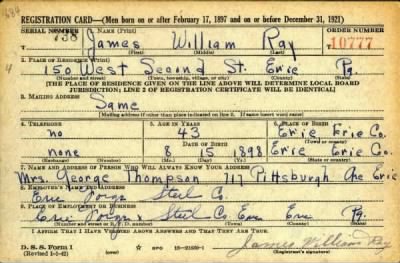 REGISTRATION CARD—(Men born on or after February 17, 1897 and on or before December 31, 1921)
SERIAL NUMBER 1. NAME (Print) ORDER NUMBER
738 James William Ray 10777
(First) (Middle) (Last)
2. PLACE OF RESIDENCE (Print)
150 West Second St. Erie Pa.
(Number and street) (Town, township, village, or city) (County) (State)
[THE PLACE OF RESIDENCE GIVEN ON THE LINE ABOVE WILL DETERMINE LOCAL BOARD
JURISDICTION; LINE 2 OF REGISTRATION CERTIFICATE WILL BE IDENTICAL]
3. MAILING ADDRESS
Same
[Mailing address if other than place indicated on line 2. If same insert word same]
4. TELEPHONE 5. AGE IN YEARS 6. PLACE OF BIRTH
no 43 Erie Erie Co.
DATE OF BIRTH (Town or county)
none 8 15 1898 Erie Erie
(Exchange) (Number) (Mo.) (Day) (Yr.) (State or country)
7. NAME AND ADDRESS OF PERSON WHO WILL ALWAYS KNOW YOUR ADDRESS
Mrs. George Thompson 717 Pittsburgh Ave Erie
8. EMPLOYER'S NAME AND ADDRESS
Erie Forge Steel Co
9. PLACE OF EMPLOYMENT OR BUSINESS
Erie Forge & Steel Co Erie Erie Pa.
(Number and street or R. F. D. number) (Town) (County) (State)
I AFFIRM THAT I HAVE VERIFIED ABOVE ANSWERS AND THAT THEY ARE TRUE.
D. S. S. Form 1
(Revised 1-5-42) (over)
James William Ray
(Registrant's signature)